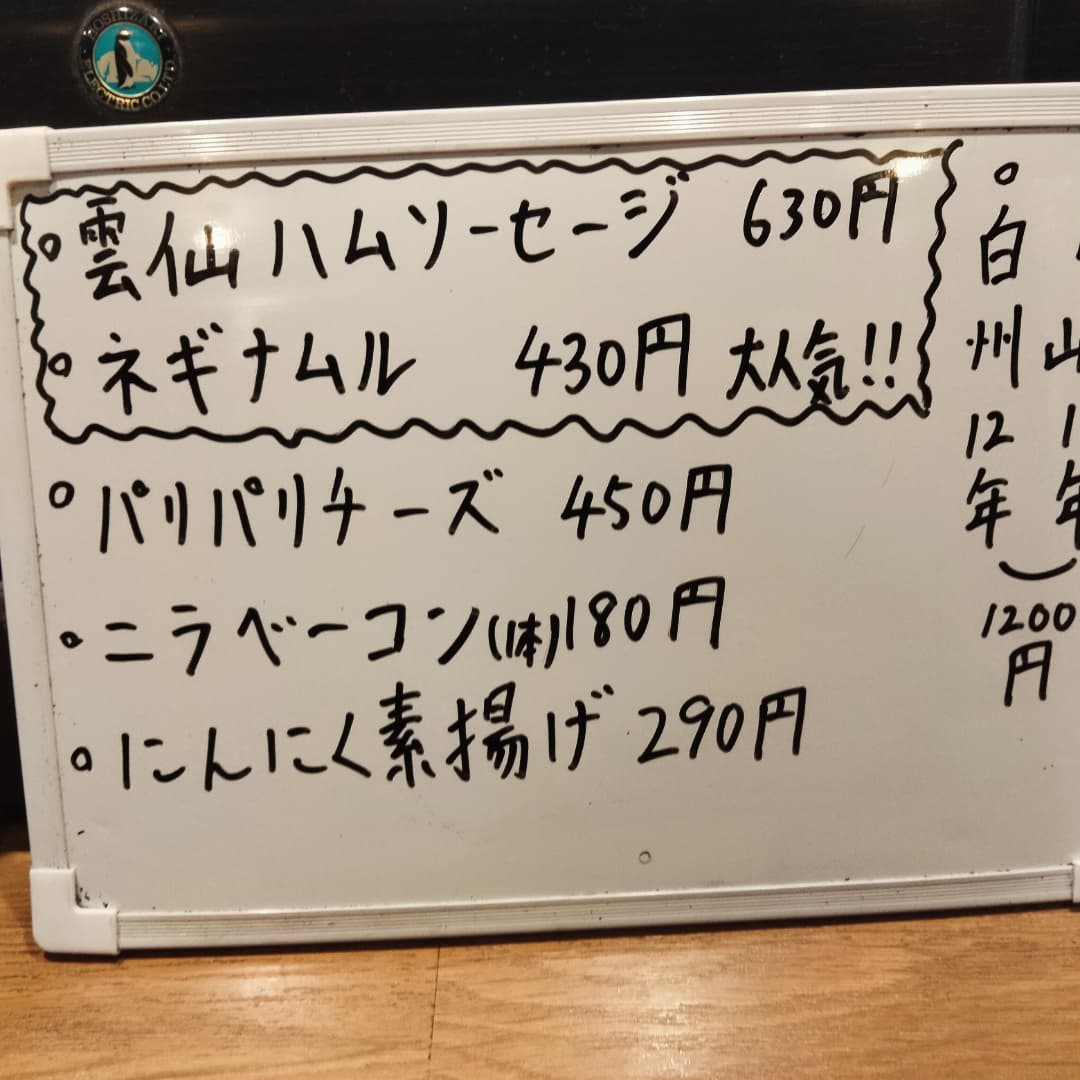 HOSHIZAKI ELECTRIC CO.,LTD.
雲仙ハムソーセージ 630円
ネギナムル 430円 大人気!!
パリパリチーズ 450円
ニラベーコン(1本)180円
にんにく素揚げ 290円
白州12年
山
1200円